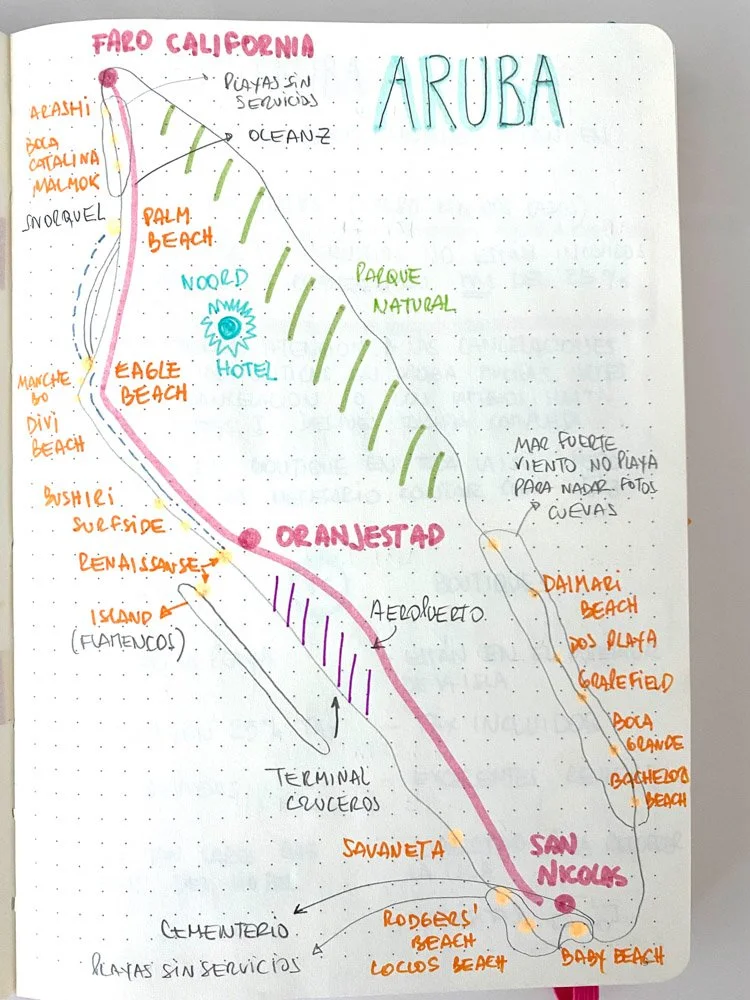 FARO CALIFORNIA
ARUBA
PLAYAS SIN
SERVICIOS
ARASHI
OCEANZ
BOCA
CATALINA
MALMOK
SNORQUEL
PALM
BEACH
NOORD
HOTEL
PARQUE
NATURAL
EAGLE
BEACH
MANCHE
BO
DIVI
BEACH
MAR FUERTE
VIENTO NO PLAYA
PARA NADAR FOTOS
CUEVAS
BUSHIRI
SURFSIDE
ORANJESTAD
RENAISSANSE
ISLAND
(FLAMENCOS)
AEROPUERTO
DAIMARI
BEACH
DOS PLAYA
GRAPEFIELD
BOCA
GRANDE
BACHELOR
BEACH
TERMINAL
CRUCEROS
SAVANETA
SAN
NICOLAS
CEMENTERIO
PLAYAS SIN SERVICIOS
RODGERS'
BEACH
LOCLOS BEACH
BABY BEACH